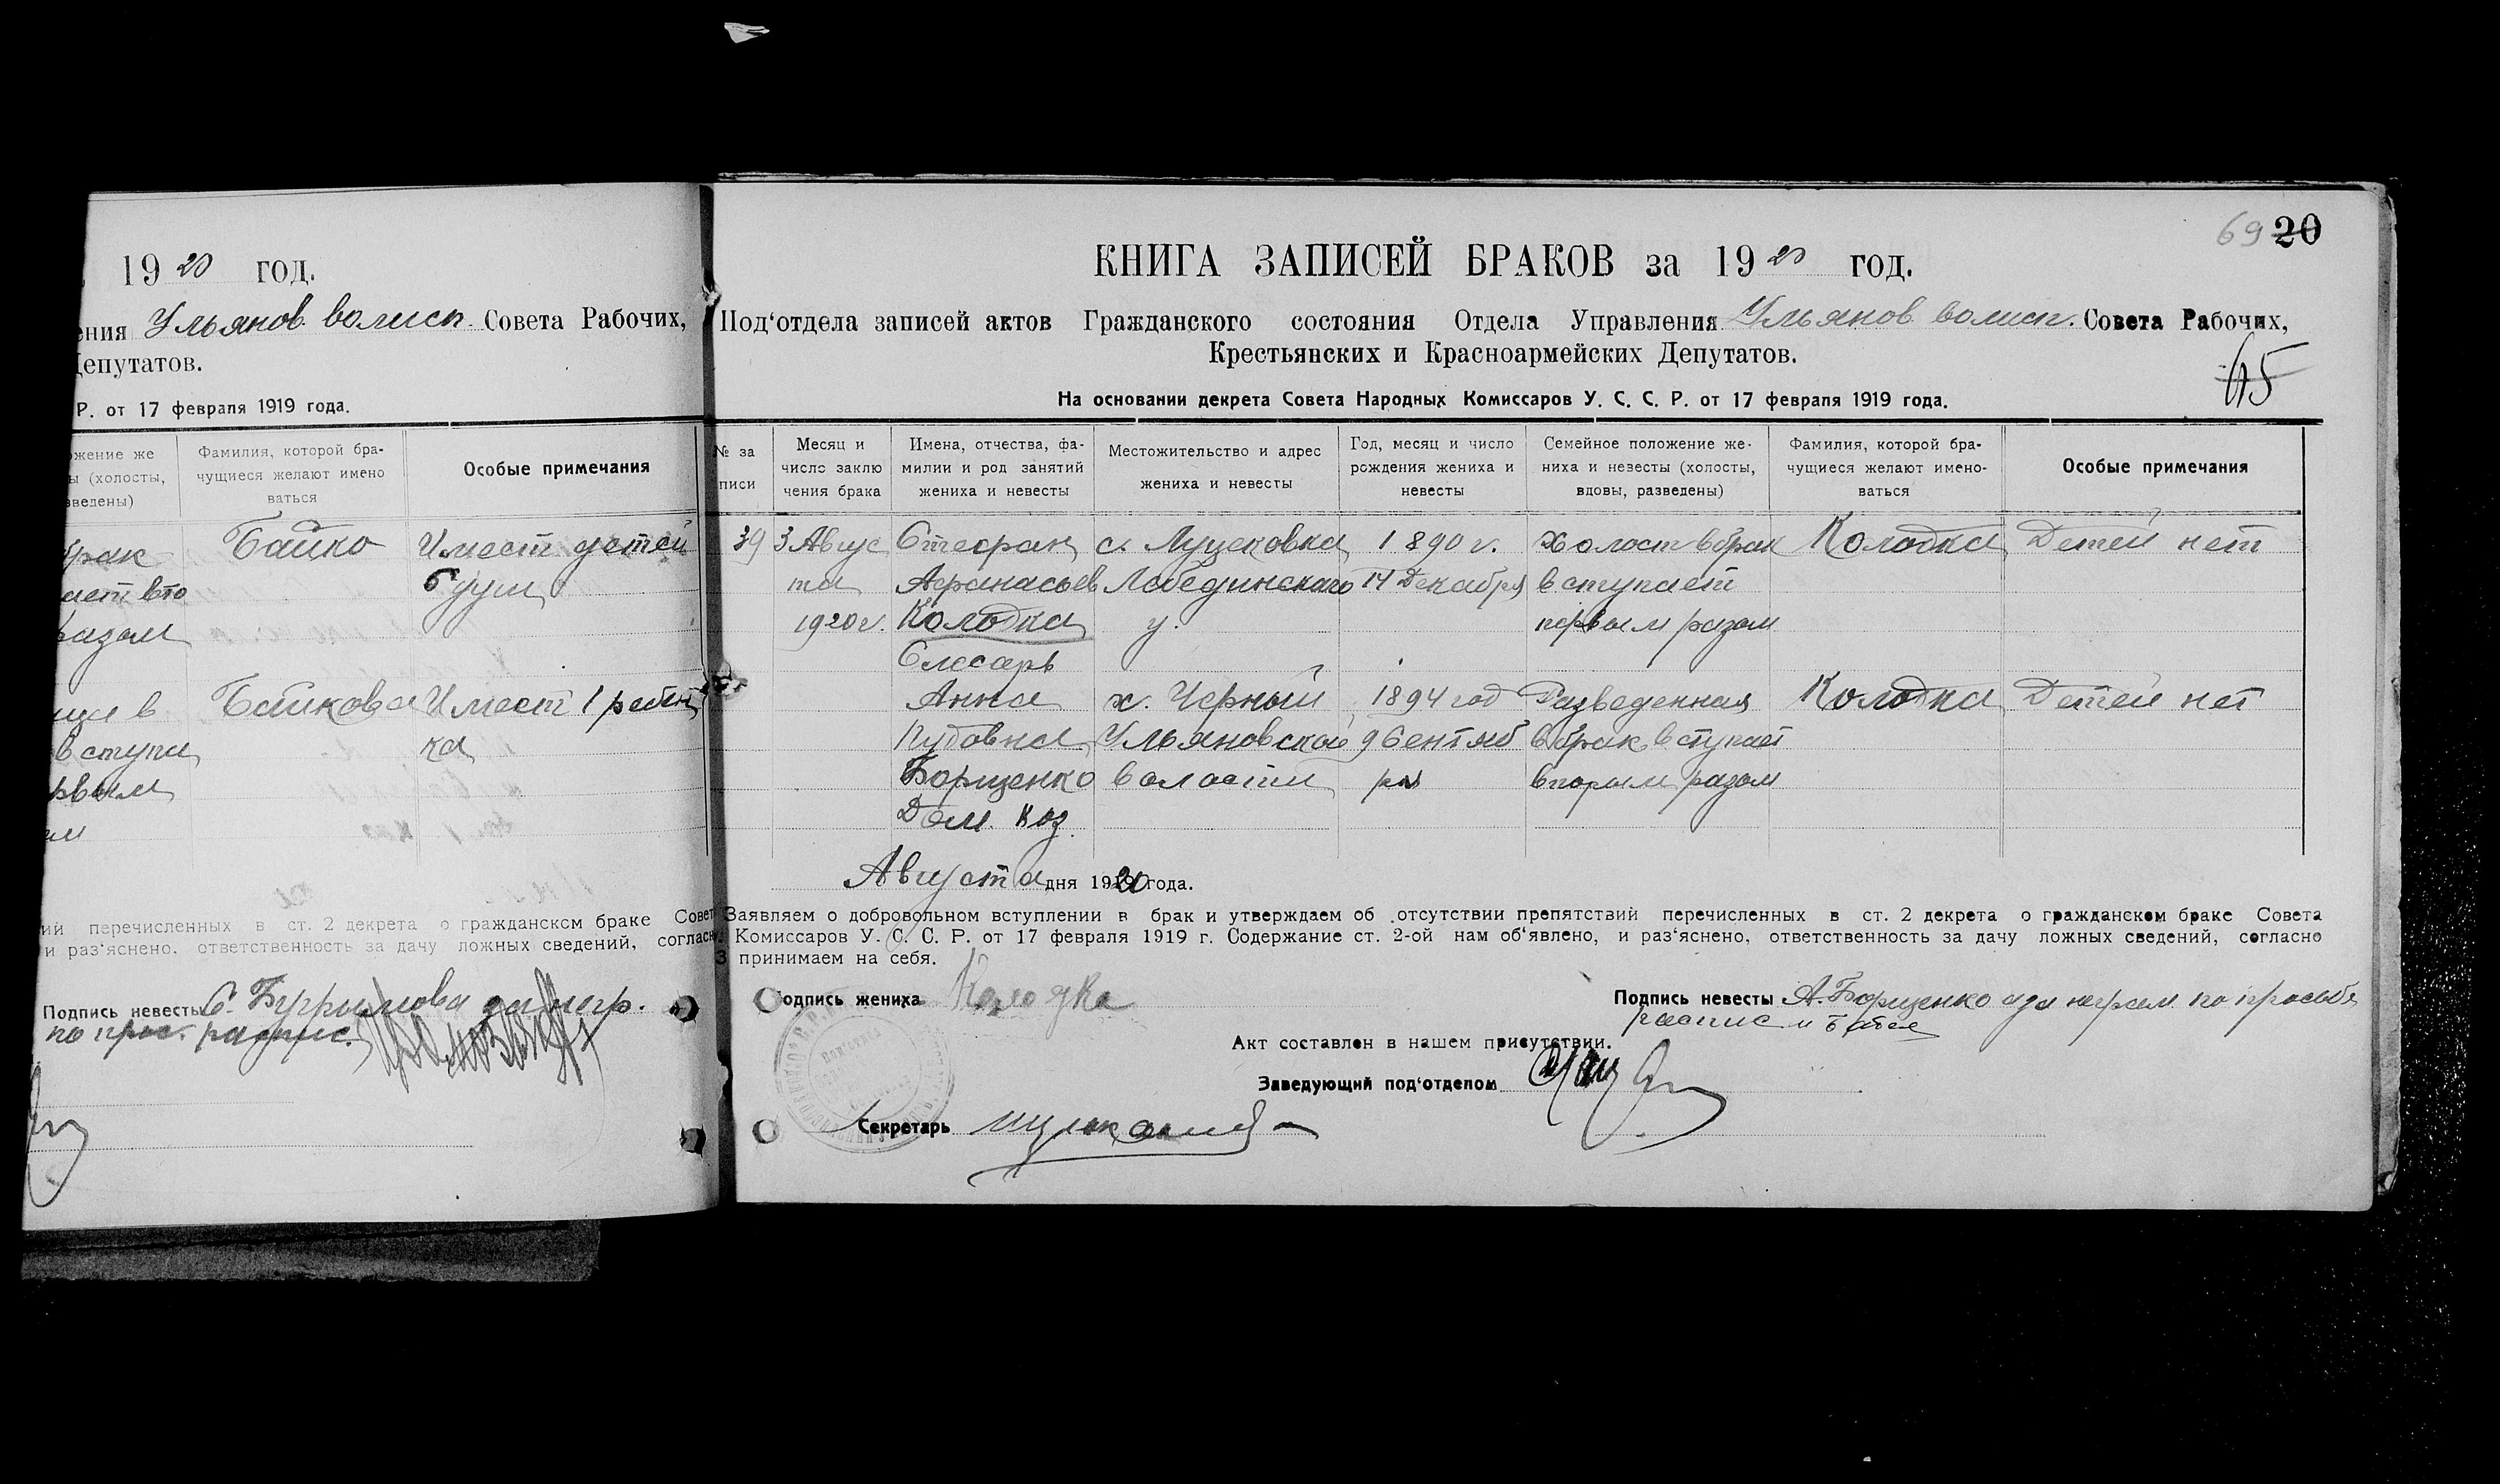 1920 год.
ения Ульянов. волисп. Совета Рабочих,
Депутатов.
Р. от 17 февраля 1919 года.
жение же
ы (холосты,
зведены)
Фамилия, которой бра-
чущиеся желают имено
ваться
Особые примечания
брак
Байко
Имеет детей
ает вто
6 душ
разом
Байкова
Имеет 1 ребен
в
вступи
ка
рвым
ий перечисленных в ст. 2 декрета о гражданском браке Совета
и раз‘яснено. ответственность за дачу ложных сведений, согласно
Подпись невесты С. за негр.
по прос. распис.
69 20
КНИГА ЗАПИСЕЙ БРАКОВ за 1920 год.
Под‘отдела записей актов Гражданского состояния Отдела Управления Ульянов. волисп. Совета Рабочих,
Крестьянских и Красноармейских Депутатов.
65
На основании декрета Совета Народных Комиссаров У. С. С. Р. от 17 февраля 1919 года.
№ за
писи
Месяц и
число заклю
чения брака
Имена, отчества, фа-
милии и род занятий
жениха и невесты
Местожительство и адрес
жениха и невесты
Год, месяц и число
рождения жениха и
невесты
Семейное положение же-
ниха и невесты (холосты,
вдовы, разведены)
Фамилия, которой бра-
чущиеся желают имено-
ваться
Особые примечания
39
3 Авгус
та
1920 г.
Стефан
Афанасьев
Колодка
Слесарь
с. Луцековка
Лебединскаго
у.
1890 г.
14 Декабря
Холост в брак
вступает
первым разом
Колодка
Детей нет
Анна
Пудовна
Борщенко
Дом. хоз.
х. Черный
Ульяновской
волости
1894 год
9 Сентяб
ря
Разведенная
в брак вступает
вторым разом
Колодка
Детей нет
Августа дня 1920 года.
Заявляем о добровольном вступлении в брак и утверждаем об отсутствии препятствий перечисленных в ст. 2 декрета о гражданском браке Совета
Комиссаров У. С. С. Р. от 17 февраля 1919 г. Содержание ст. 2-ой нам об‘явлено, и раз‘яснено, ответственность за дачу ложных сведений, согласно
3 принимаем на себя.
Подпись жениха Колодка
Подпись невесты А. Борщенко а за неграм. по просьбе
распис
Акт составлен в нашем присутствии.
Заведующий под‘отделом
Секретарь